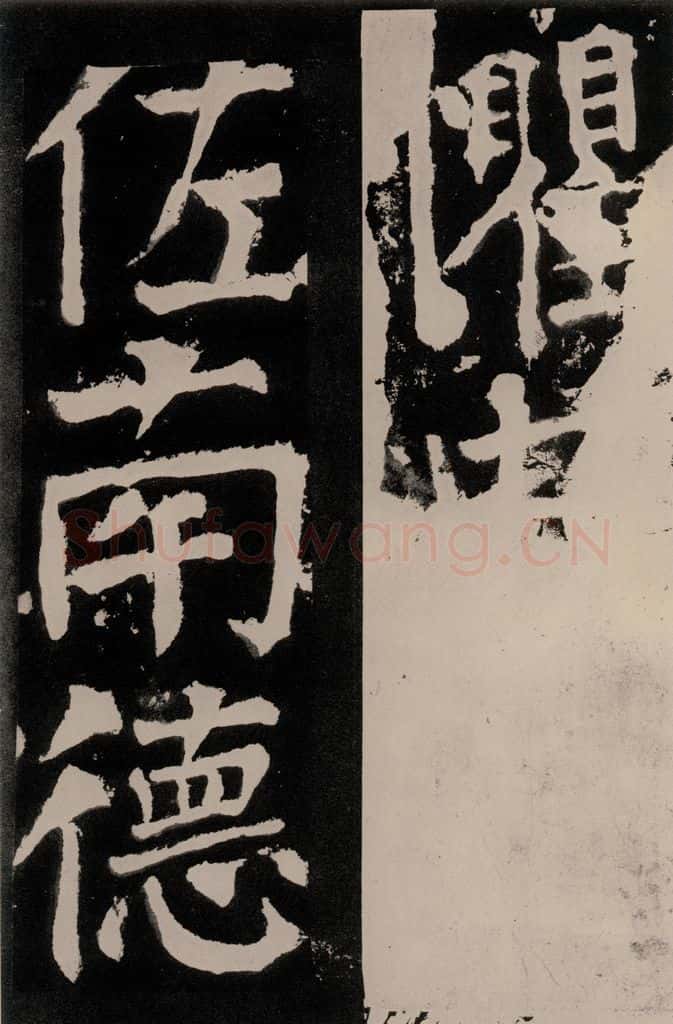 懼
佐南德
Shufawang.CN